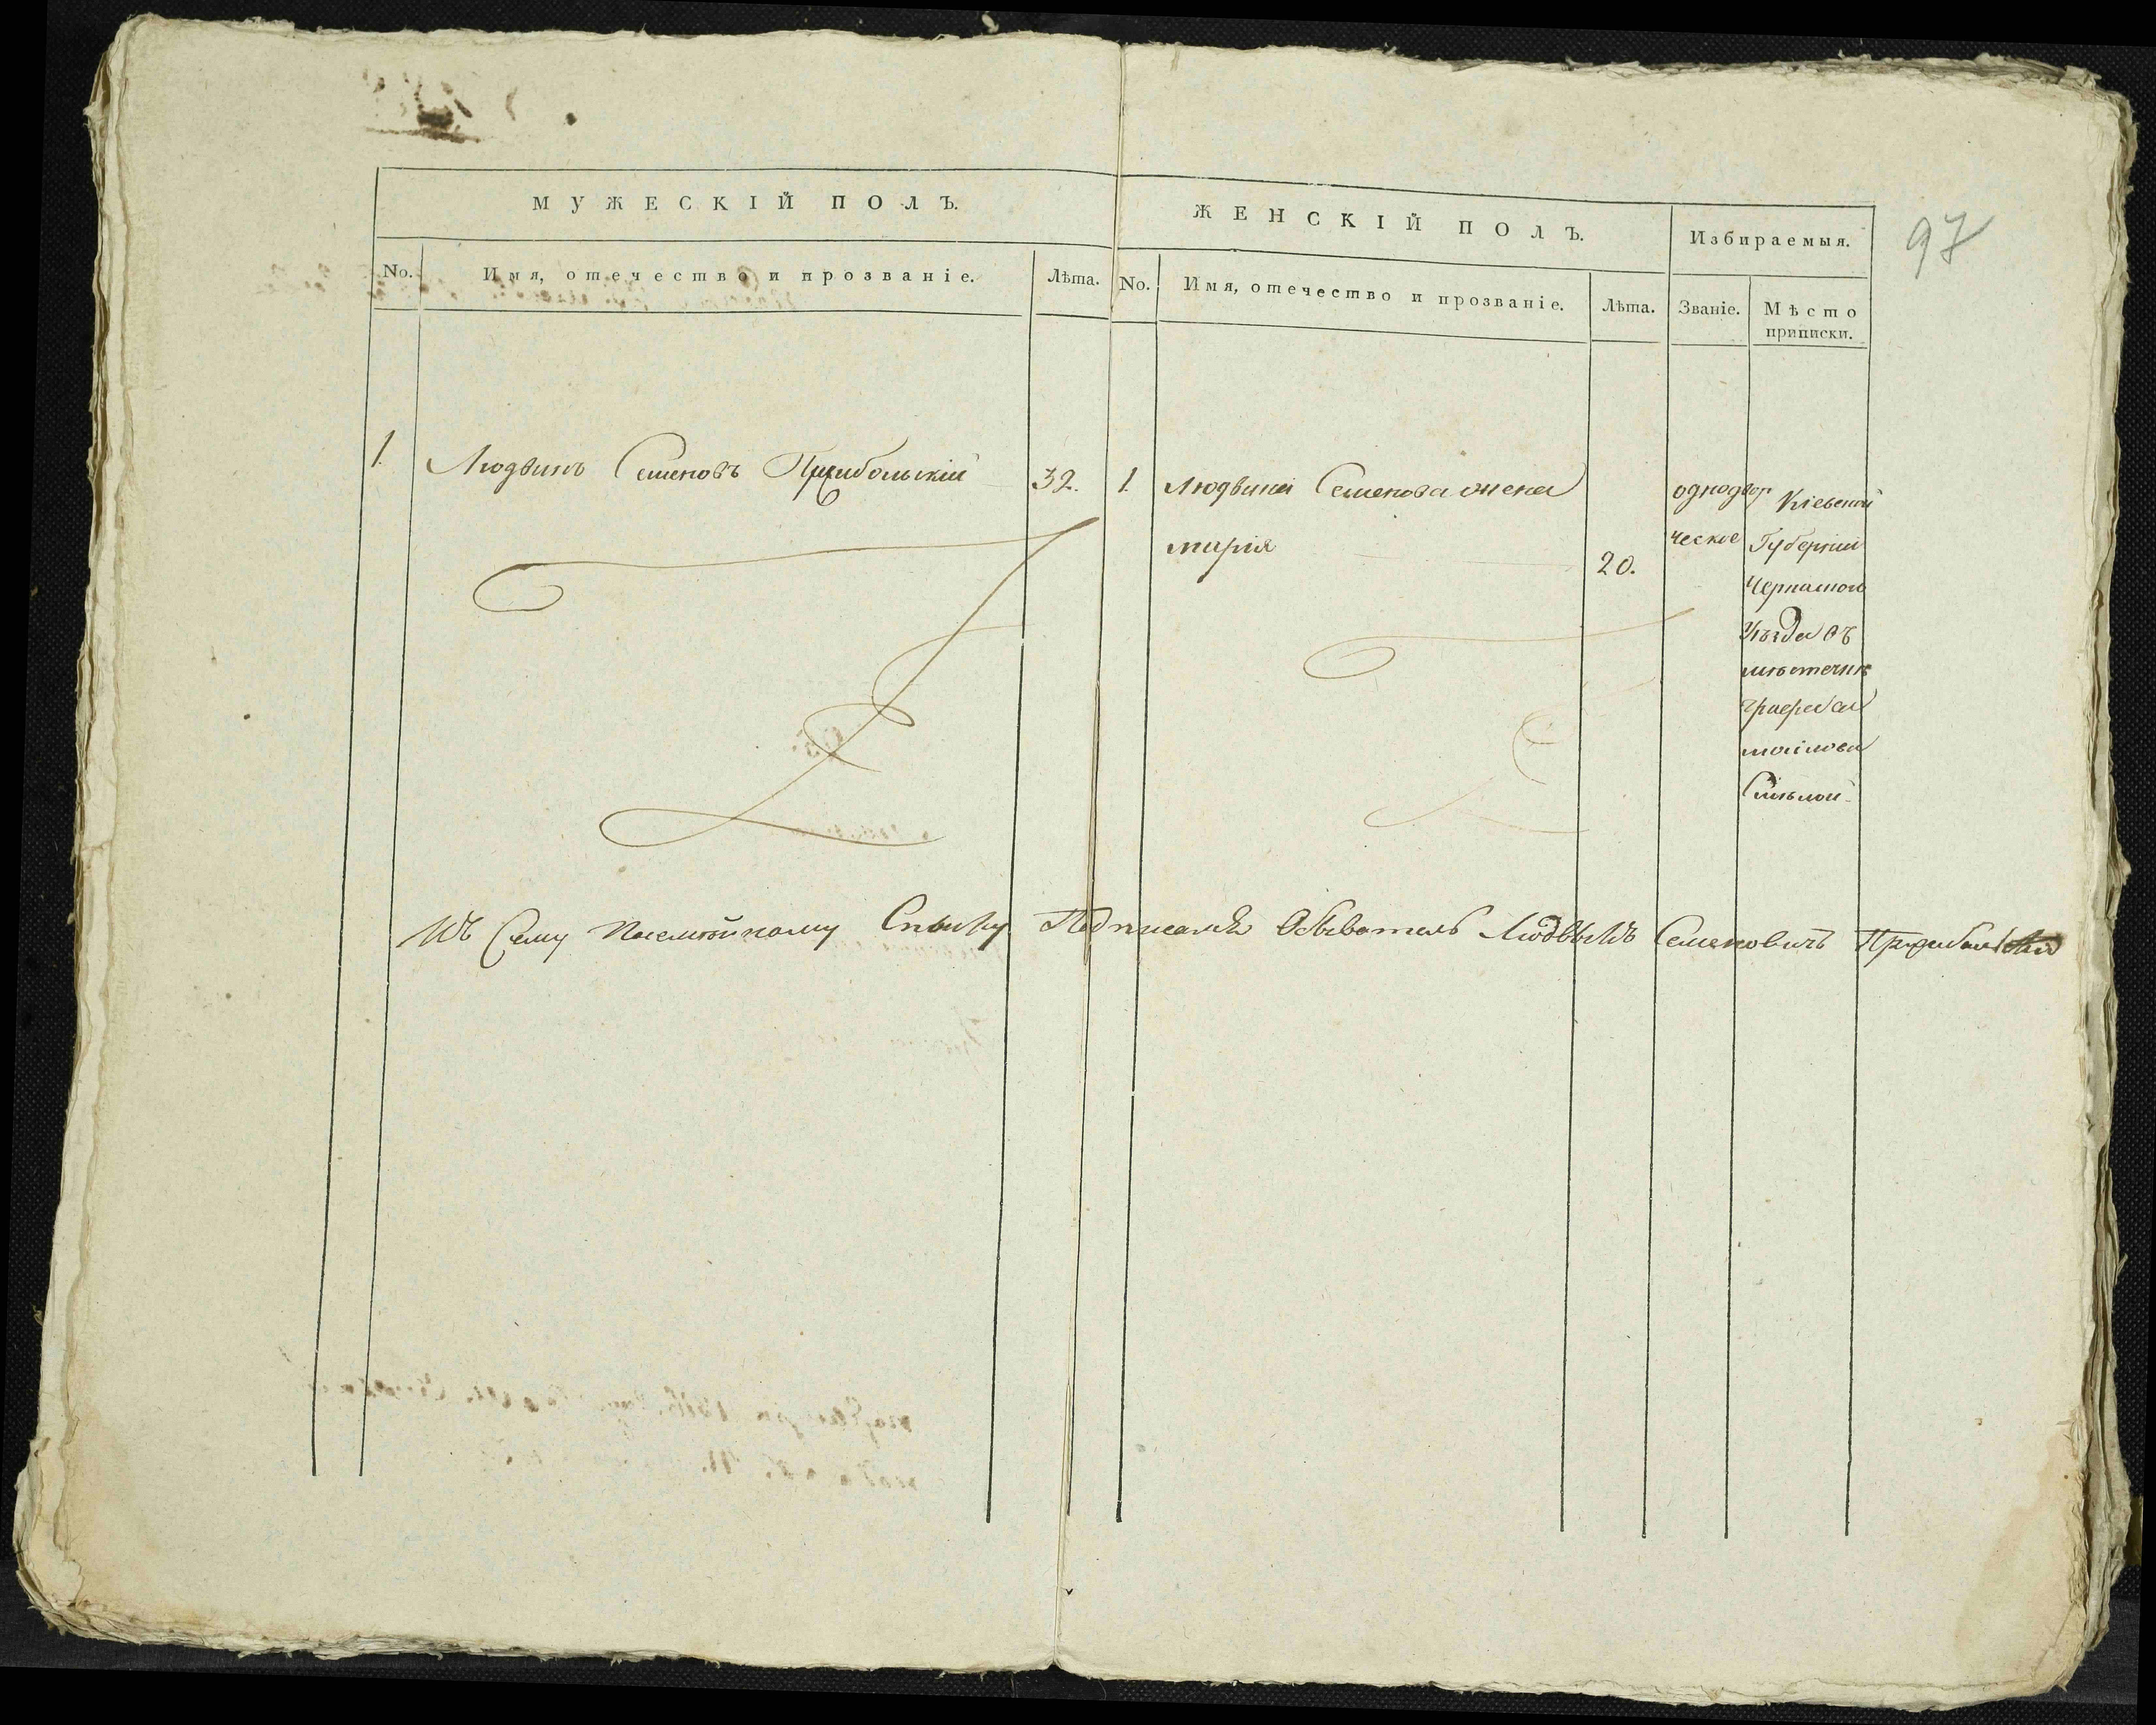 97
МУЖЕСКІЙ ПОЛЪ.
ЖЕНСКІЙ ПОЛЪ.
Избираемыя.
No.
Имя, отечество и прозваніе.
Лѣта.
No.
Имя, отечество и прозваніе.
Лѣта.
Званіе.
Мѣсто
приписки.
1. Людвикъ Семеновъ
32.
1. Людвика Семенова жена
марія
20.
однодвор
ческое
Кіевской
Губерніи
Уѣзда въ
мѣстечкѣ
Смѣлой
Къ Сему Посемейному Списку Подписался Обыватель Людвыкъ Семеновичъ